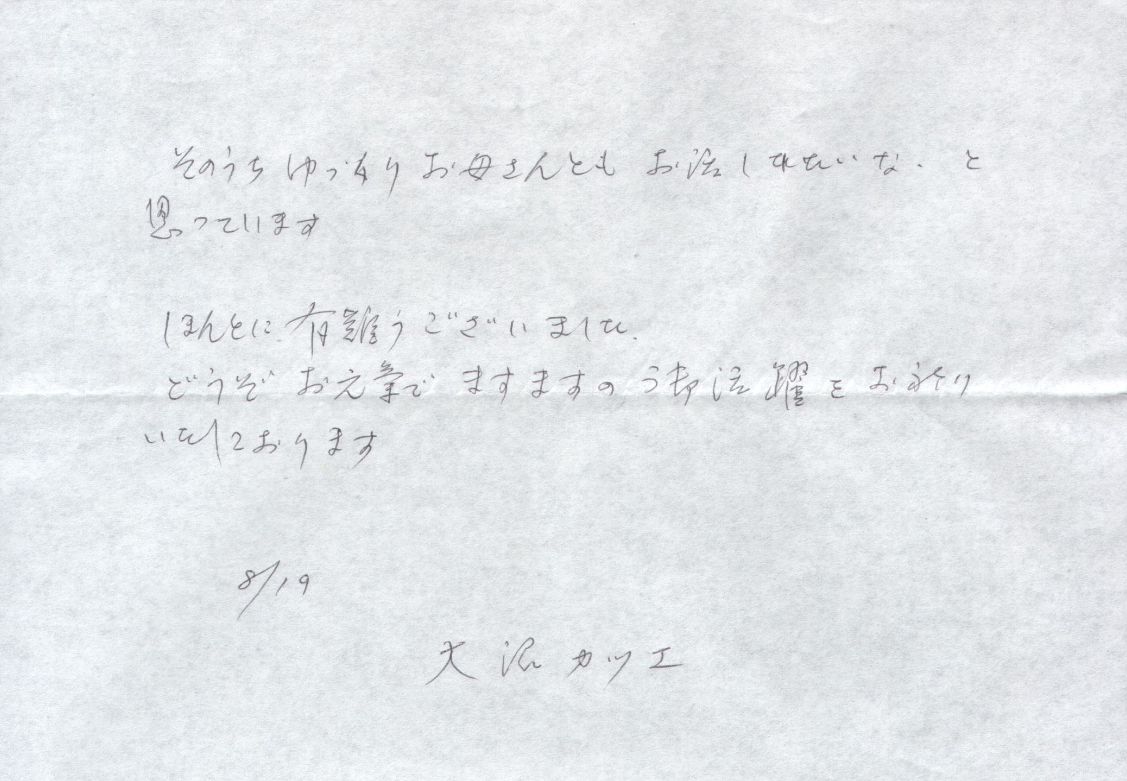 そのうちゆっくりお母さんともお話ししたいな、と
思っています
ほんとに有難うございました、
どうぞお元気でますますのご活躍をお祈り
いたしております
8/19
大沢カツエ